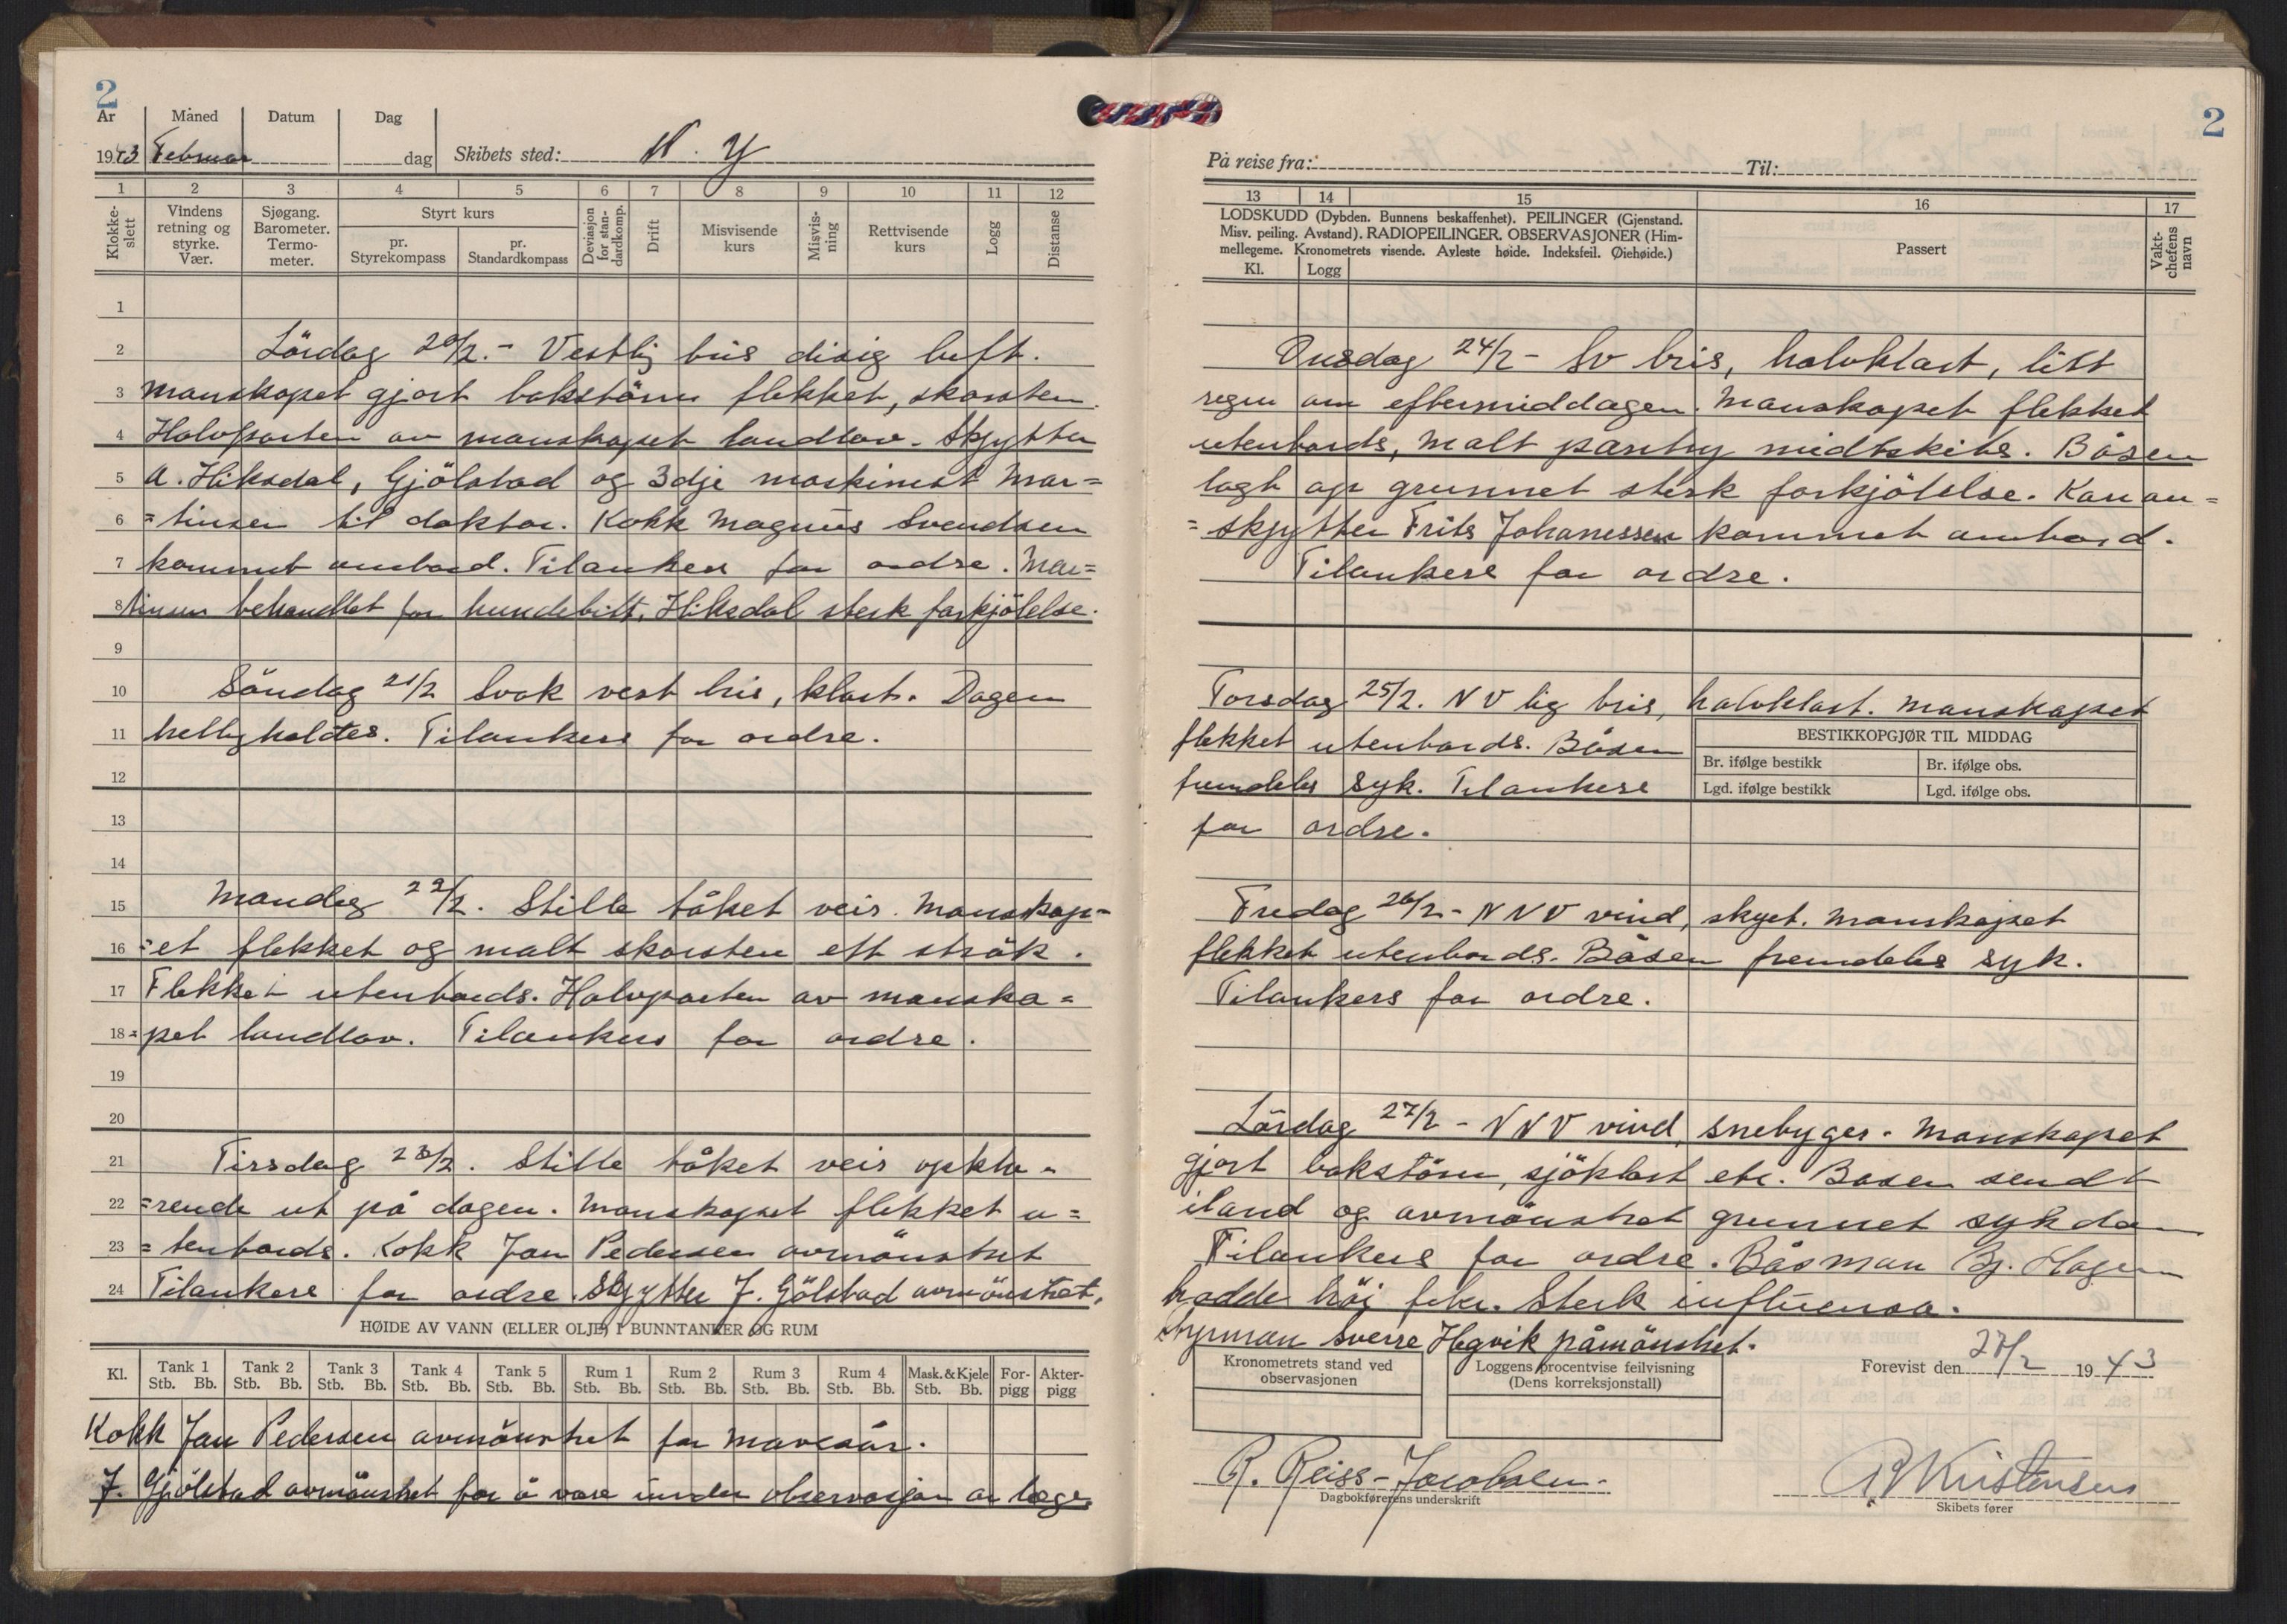 2
År Måned Datum Dag
1943 Februar dag Skibets sted: N. Y
1 2 3 4 5 6 7 8 9 10 11 12
Klokke-slett Vindens retning og styrke. Vær. Sjøgang. Barometer. Termo-meter. Styrt kurs pr. Styrekompass pr. Standardkompass Deviasjon for stan-dardkomp. Drift Misvisende kurs Misvis-ning Rettvisende kurs Logg Distanse
1
2 Lördag 20/2.- Vestlig bris disig luft.
3 Manskapet gjort bakstörn flekket, skorsten.
4 Halvparten av manskapet landlov. Skytter
5 A. Hiksdal, Gjölstad og 3dje maskinist Mar=
6 =tinsen til doktor. Kokk Magnus Svendsen
7 kommet ombord. Tilankers for ordre. Mar=
8 tinsen behandlet for hundebitt, Hiksdal sterk forkjölelse.
9
10 Söndag 21/2 Svak vest bris, klart. Dagen
11 helligholdtes. Tilankers for ordre.
12
13
14
15 Mandag 22/2. Stille tåket veir. Manskap=
16 =et flekket og malt skorsten ett strök.
17 Flekket utenbords. Halvparten av manska=
18 =pet landlov. Tilankers for ordre.
19
20
21 Tirsdag 23/2. Stille tåket veir opkla=
22 =rende ut på dagen. Manskapet flekket u=
23 =tenbords. Kokk Jan Pedersen avmönstret
24 Tilankers for ordre. Skytter J. Gjölstad avmönstret.
HØIDE AV VANN (ELLER OLJE) I BUNNTANKER OG RUM
Kl. Tank 1 Stb. Bb. Tank 2 Stb. Bb. Tank 3 Stb. Bb. Tank 4 Stb. Bb. Tank 5 Stb. Bb. Rum 1 Stb. Bb. Rum 2 Stb. Bb. Rum 3 Stb. Bb. Rum 4 Stb. Bb. Mask. & Kjele Stb. Bb. For-pigg Akter-pigg
Kokk Jan Pedersen avmönstret for mavesår.
J. Gjölstad avmönstret for å være under observasjon av læge.
2
På reise fra: Til:
13 14 15 16 17
LODSKUDD (Dybden. Bunnens beskaffenhet). PEILINGER (Gjenstand.
Misv. peiling. Avstand). RADIOPEILINGER. OBSERVASJONER (Him-
mellegeme. Kronometrets visende. Avleste høide. Indeksfeil. Øiehøide.)
Kl. Logg
Passert
Vakt-chefens navn
Onsdag 24/2 - SV bris, halvklart, litt
regn om eftermiddagen. Manskapet flekket
utenbords, malt pantry midtskibs. Båsen
lagt op grunnet sterk forkjölelse. Kanon=
=skytter Frits Johanessen kommet ombord.
Tilankers for ordre.
Torsdag 25/2. NV lig bris, halvklart. Manskapet
flekket utenbords. Båsen
fremdeles syk. Tilankers
for ordre.
BESTIKKOPGJØR TIL MIDDAG
Br. ifølge bestikk Br. ifølge obs.
Lgd. ifølge bestikk Lgd. ifølge obs.
Fredag 26/2 - NNV vind, skyet. Manskapet
flekket utenbords. Båsen fremdeles syk.
Tilankers for ordre.
Lördag 27/2 - NNV vind, snebyger. Manskapet
gjort bakstörn, sjöklart etc. Båsen sendt
iland og avmönstret grunnet sykdom
Tilankers for ordre. Båsman Bj. Hagen
hadde höi feber. Sterk influensa.
Styrman Sverre Hegvik påmönstret.
Kronometrets stand ved observasjonen
Loggens procentvise feilvisning (Dens korreksjonstall)
Forevist den 27/2 1943
R. Reiss-Jacobsen
Dagbokførerens underskrift
Kristensen
Skibets fører